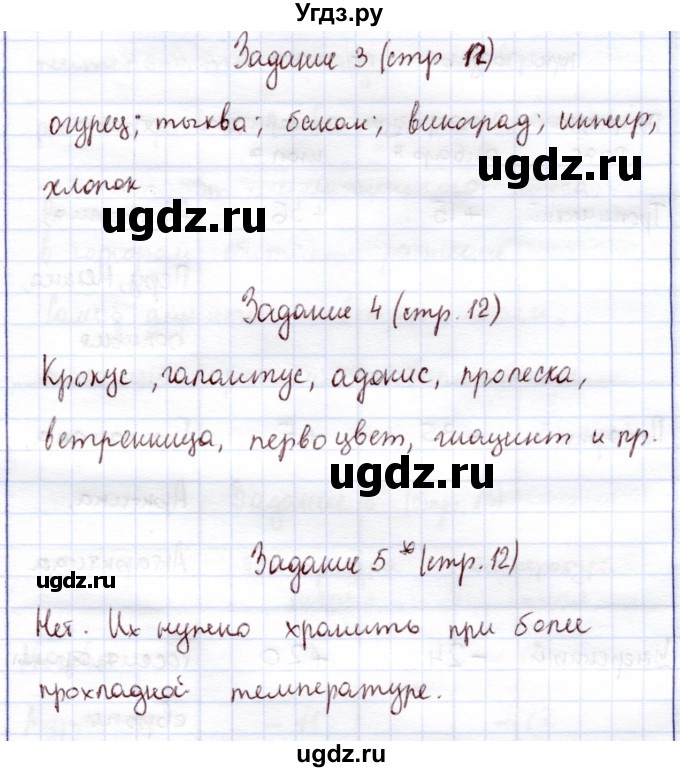 Угдз.ру
Задание 3 (стр. 12)
огурец; тыква; баклан; виноград; инжир,
ugdz.ru
хлопок.
ugdz.ru
Задание 4 (стр. 12)
Крокус, галантус, адонис, пролеска,
ветренница, первоцвет, гиацинт и пр.
ugdz.ru
Задание 5* (стр. 12)
ugdz.ru
Нет. Их нужно хранить при более
прохладной температуре.
ugdz.ru
ugdz.ru